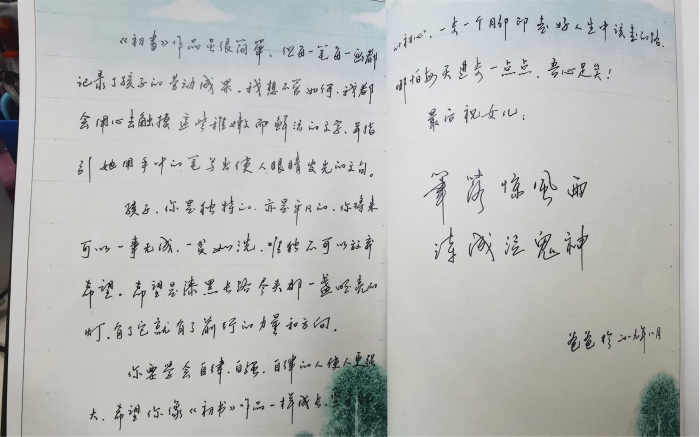 《初书》作品虽很简单，但每一笔每一画都
记录了孩子的劳动成果。我想不管如何，我都
会用心去触摸这些稚嫩而鲜活的文字，并指
引她用手中的笔写出使人眼睛发光的文句。
孩子，你是独特的，亦是平凡的，你将来
可以一事无成，一贫如洗，唯独不可以放弃
希望。希望是漆黑长路尽头那一盏明亮的
灯，有了它就有了前行的力量和方向。
你要学会自律、自强，自律的人使人更强
大，希望你像《初书》作品一样成长，
的初心，一步一个脚印走好人生中该走的路，
哪怕每天进步一点点，吾心足矣！
最后祝女儿：
笔落惊风雨
诗成泣鬼神
爸爸于二〇一九年八月